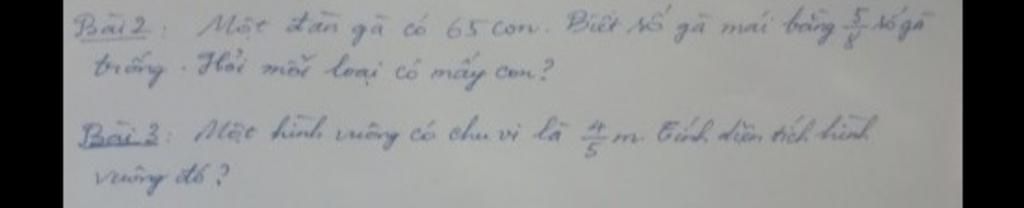 Bài 2: Một đàn gà có 65 con. Biết số gà mái bằng 5/8 số gà
trống. Hỏi mỗi loại có mấy con?
Bài 3: Một hình vuông có chu vi là 4/5 m. Tính diện tích hình
vuông đó?